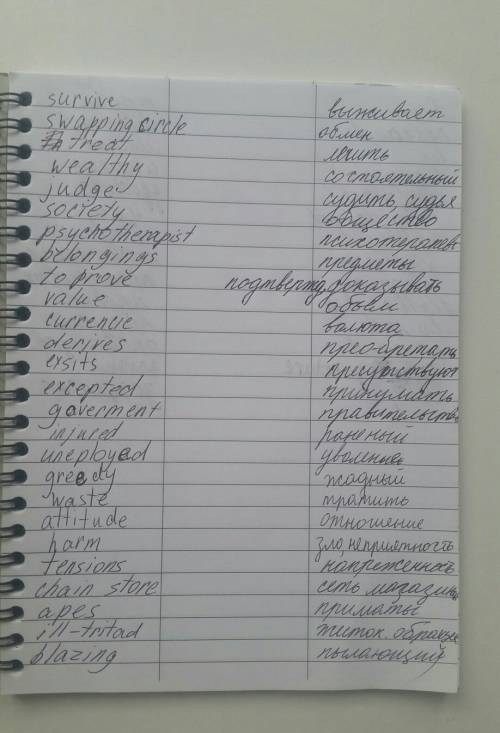 survive выживает
swapping circle обмен
treat лечить
wealthy состоятельный
judge судить, судья
society общество
psychotherapist психотерапевт
belongings предметы
to prove подтвержд, доказывать
value объём
currencie валюта
derives преобретать
exsits
excepted принимать
goverment правительство
injured раненый
uneployed
greedy жадный
waste тратить
attitude отношение
harm зло, неприятность
tensions
chain store сеть магазины
apes приматы
ill-tritad жесток. обращ
blazing пылающий